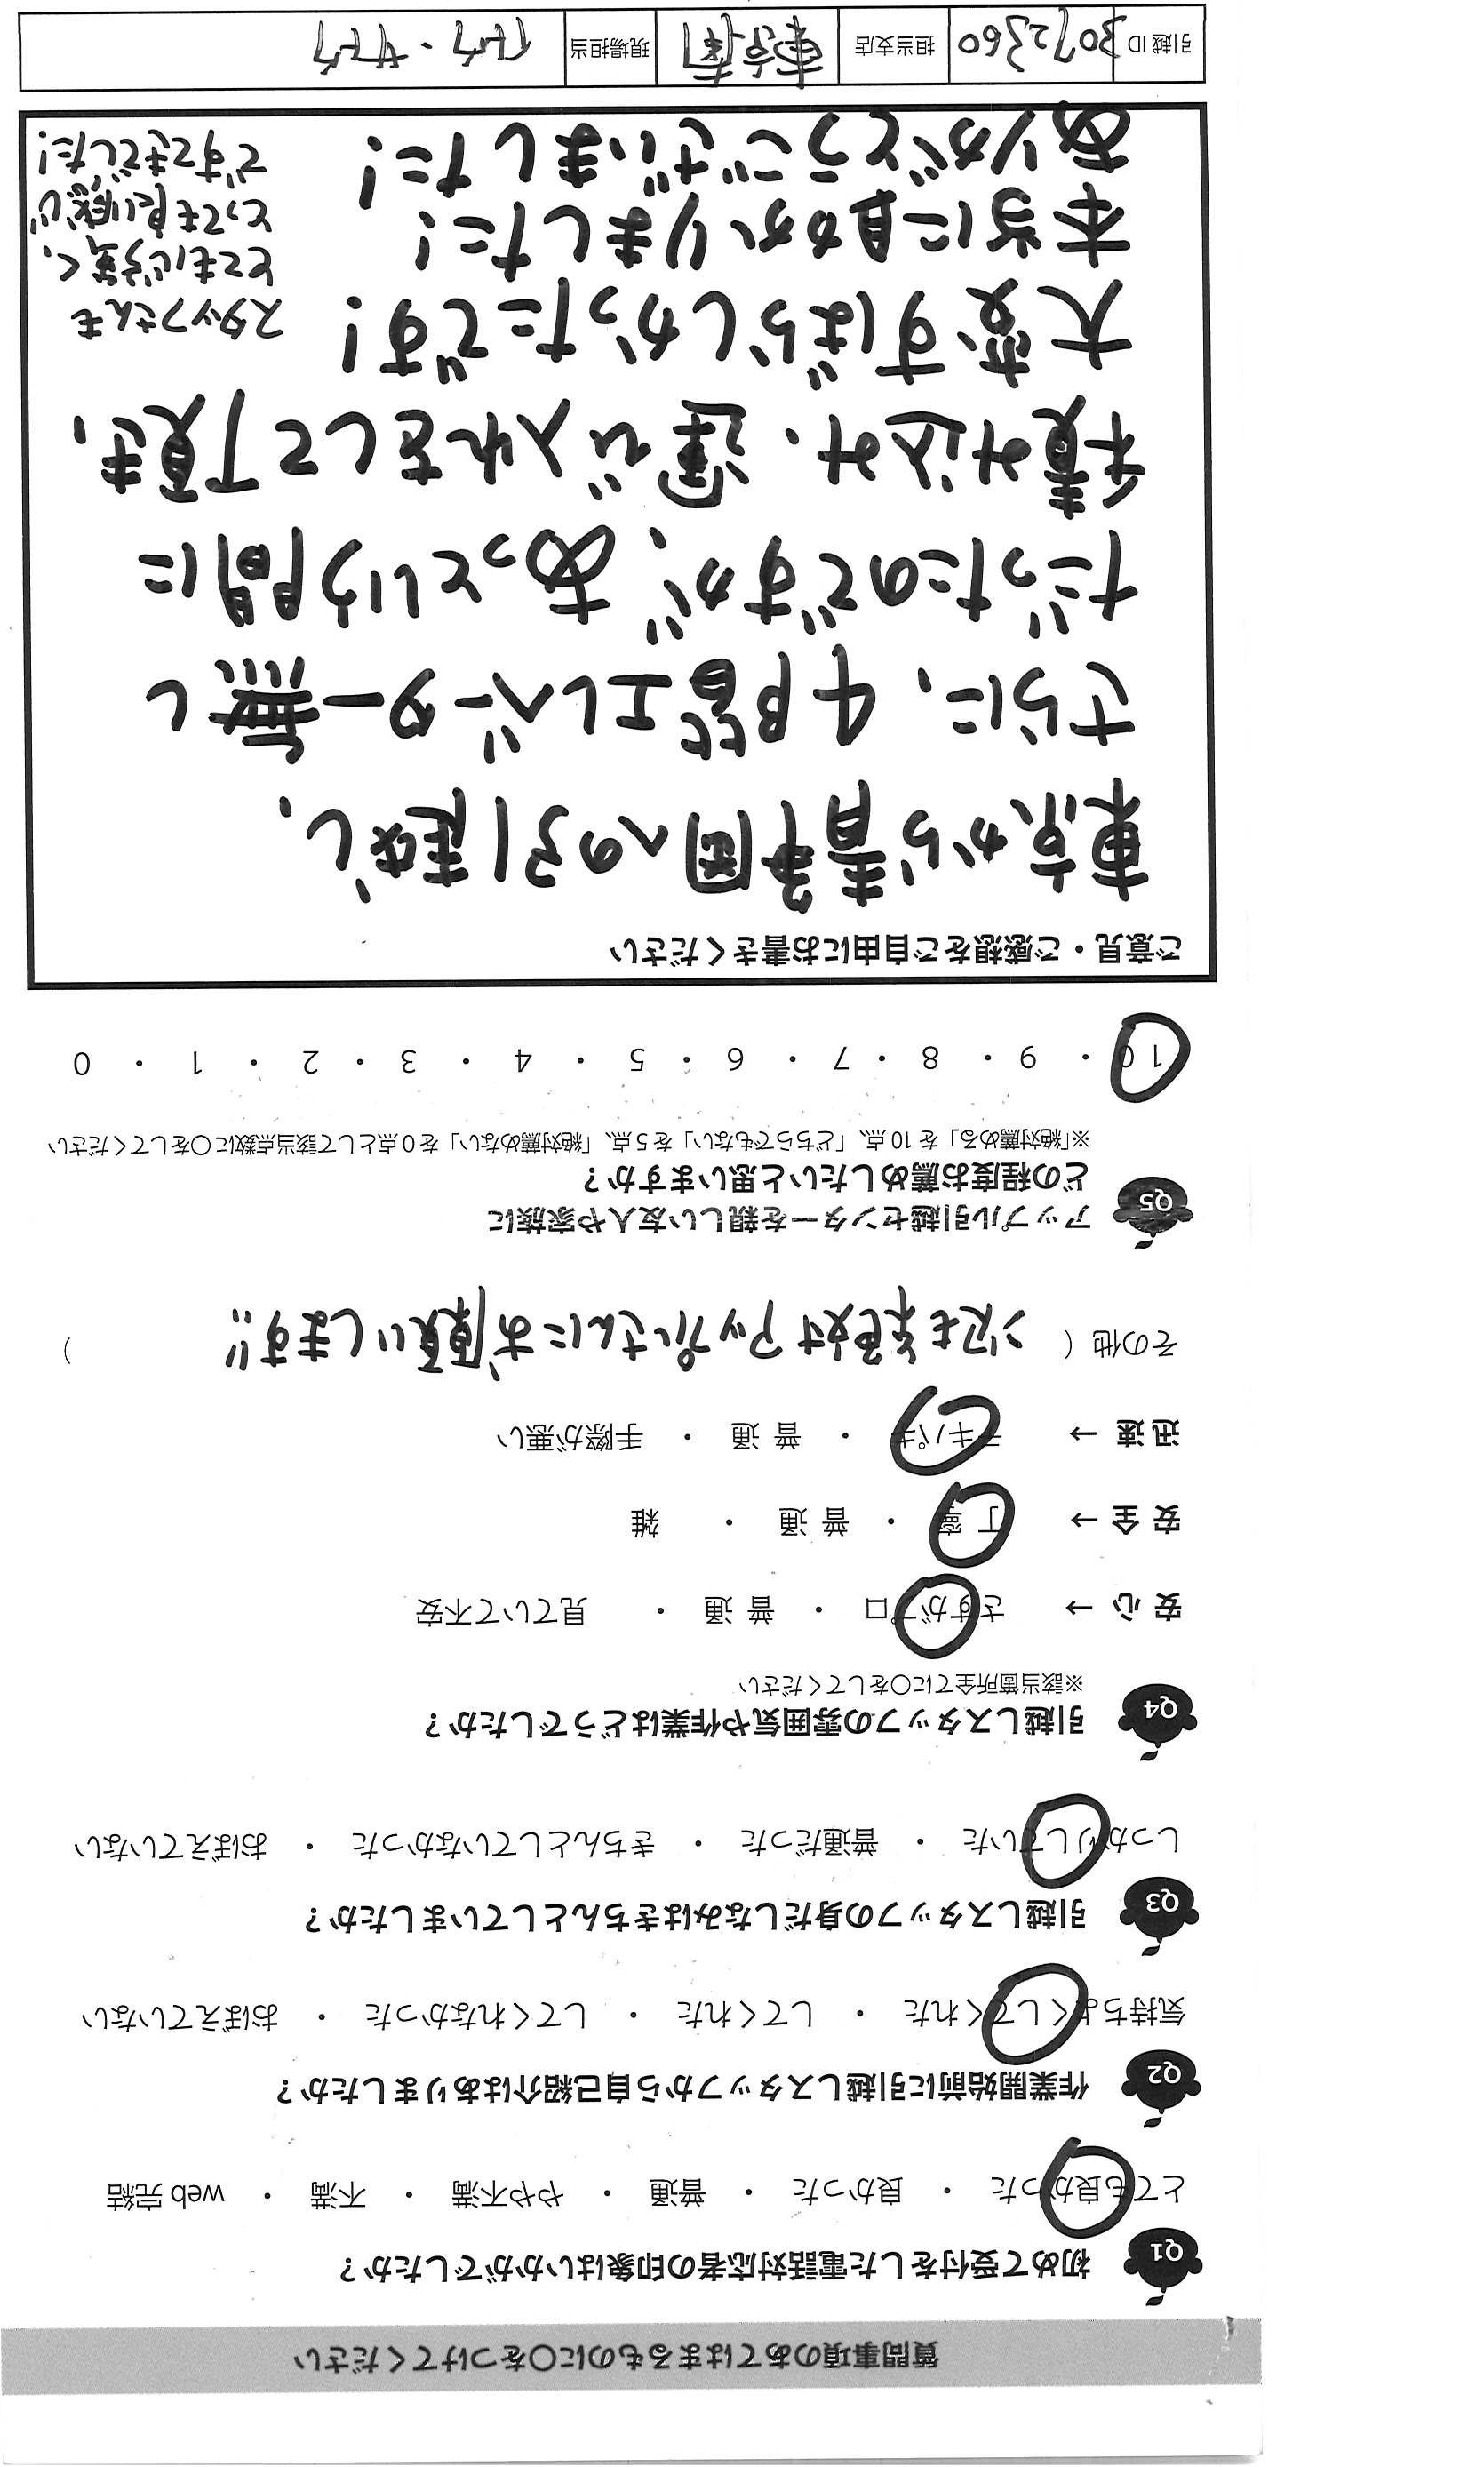 質問事項のあてはまるものに〇をつけてください
Q1 初めて受付をした電話対応者の印象はいかがでしたか？
とても良かった ・ 良かった ・ 普通 ・ やや不満 ・ 不満 ・ web 完結
Q2 作業開始前に引越しスタッフから自己紹介はありましたか？
気持ちよくしてくれた ・ してくれた ・ してくれなかった ・ おぼえていない
Q3 引越しスタッフの身だしなみはきちんとしていましたか？
しっかりしていた ・ 普通だった ・ きちんとしていなかった ・ おぼえていない
Q4 引越しスタッフの雰囲気や作業はどうでしたか？
※該当箇所全てに〇をしてください
安 心 → さすがプロ ・ 普 通 ・ 見ていて不安
安 全 → 丁 寧 ・ 普 通 ・ 雑
迅 速 → テキパキ ・ 普 通 ・ 手際が悪い
その他 ( 次も絶対アップルさんにお願いします!! )
Q5 アップル引越センターを親しい友人や家族に
どの程度お薦めしたいと思いますか？
※「絶対薦める」を 10 点、「どちらでもない」を 5 点、「絶対薦めない」を 0 点として該当点数に〇をしてください
10 ・ 9 ・ 8 ・ 7 ・ 6 ・ 5 ・ 4 ・ 3 ・ 2 ・ 1 ・ 0
ご意見・ご感想をご自由にお書きください
東京から静岡への引越し、
さらに、4階エレベーター無し
だったのですが、あっという間に
積み込み、運び入れをして頂き、
大変すばらしかったです！
本当に助かりました！
ありがとうございました！
スタッフさんも
とても心易く、
とっても良い感じ
ですてきでした！
引越ID 3072360 担当支店 東京南 現場担当 イトウ・サトウ